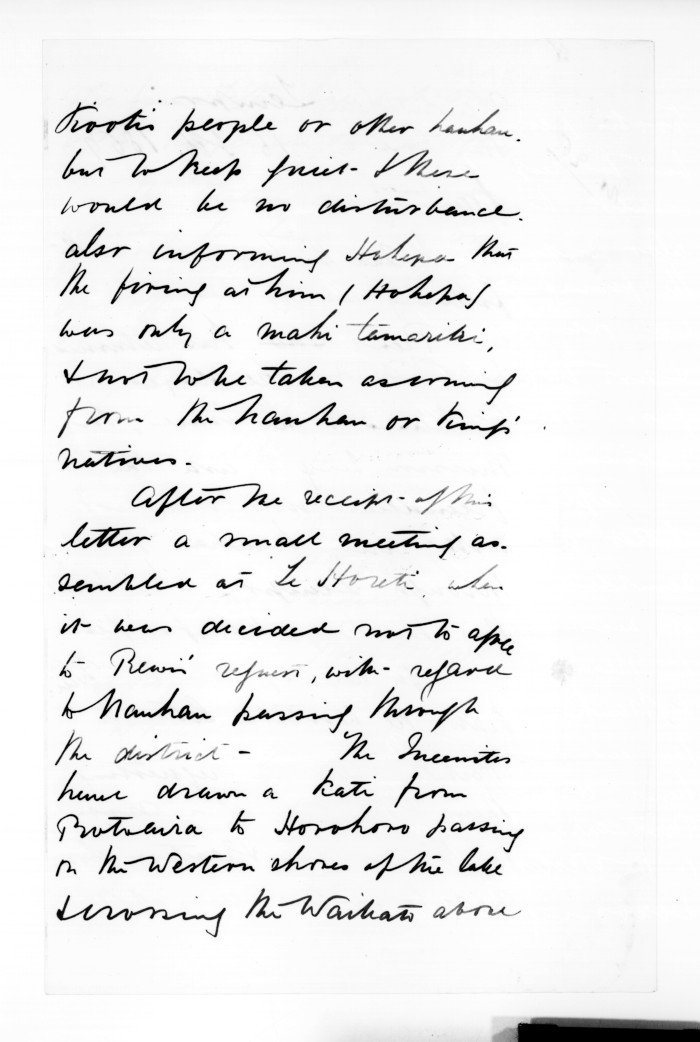 Kooti's people or other hauhau.
but to keep quiet - & there
would be no disturbance.
also informing Hohepa that
the firing at him (Hohepa)
was only a mahi tamariki,
& not to be taken as coming
from the hauhau or King's
natives.
After the receipt of this
letter a small meeting as-
sembled at Te Horeti, when
it was decided not to agree
to Rewi's request, with regard
to Hauhau passing through
the district - The
have drawn a Kati from
Rotoaira to Horohoro passing
on the Western shores of the lake
& crossing the Waikato above